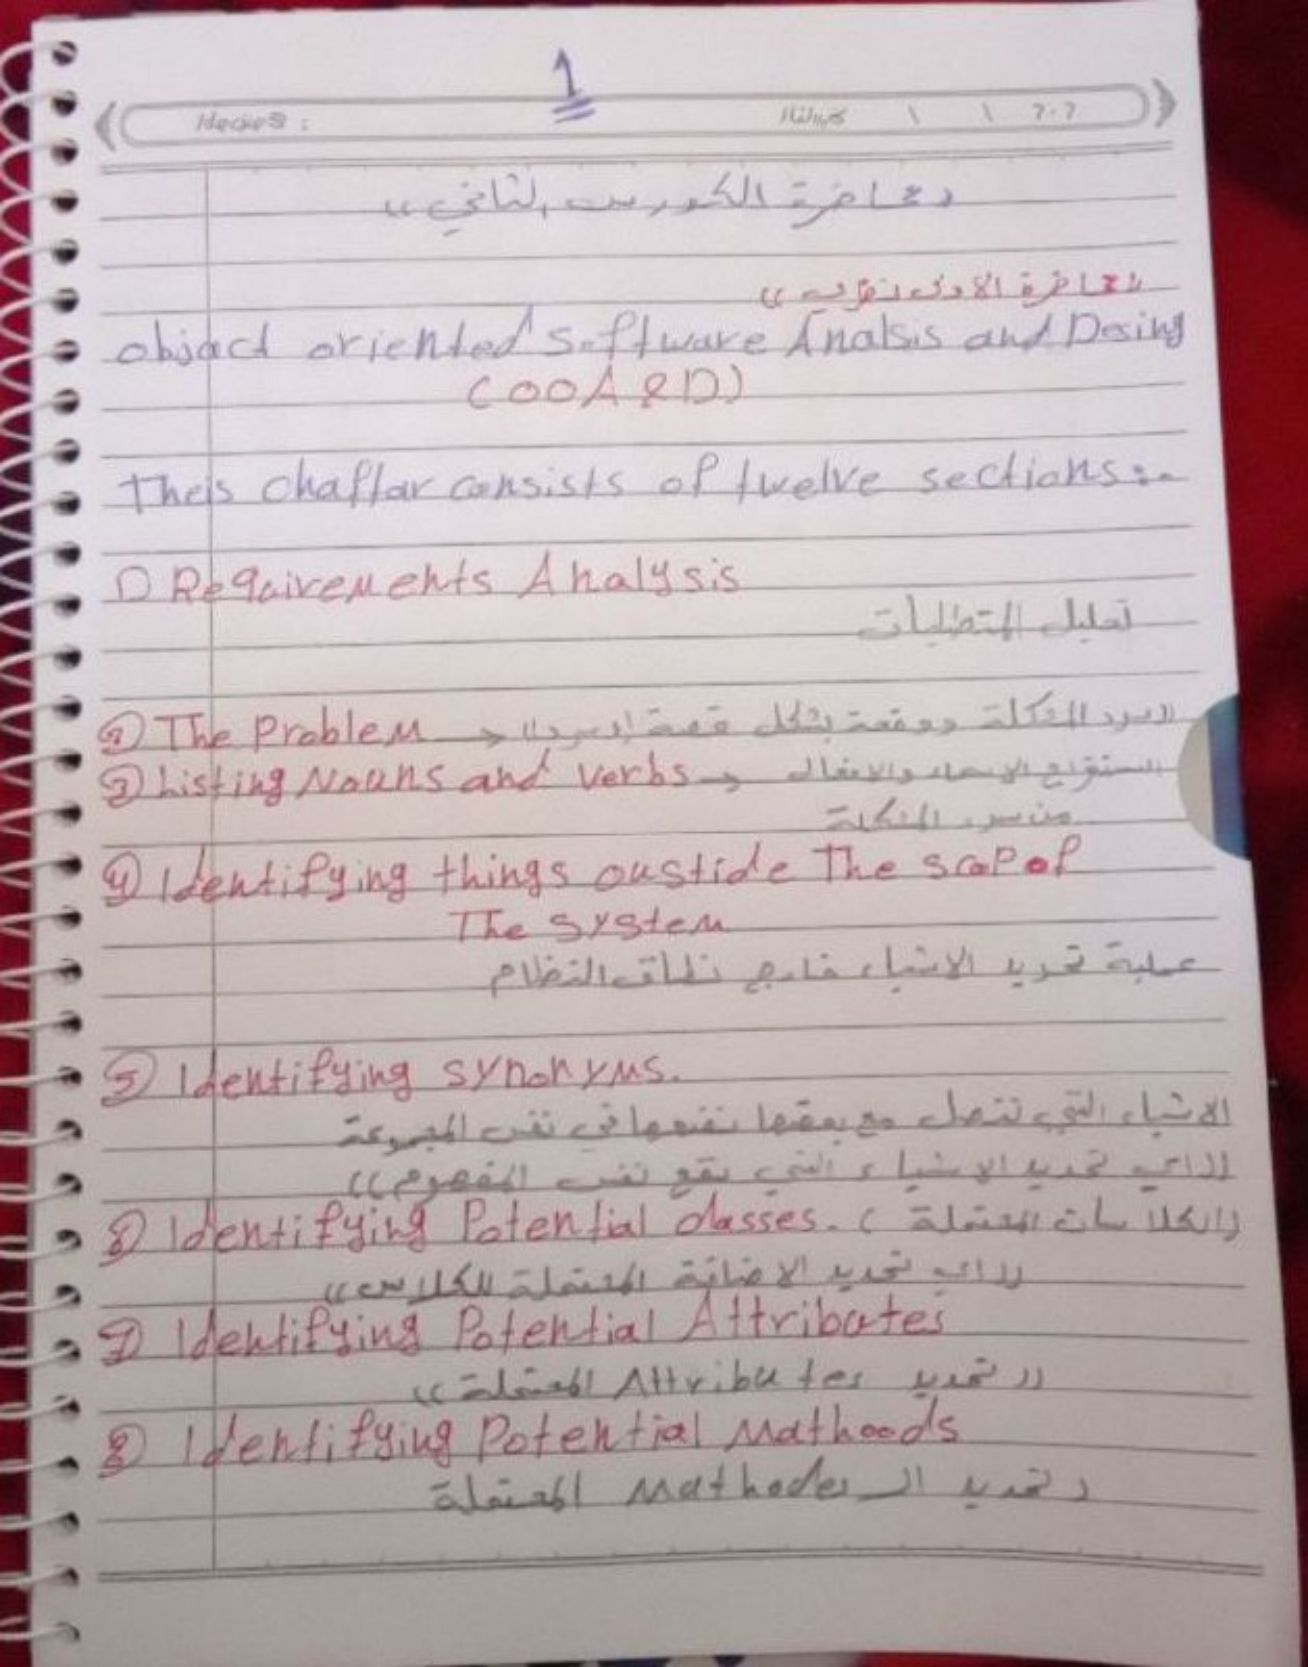 1
محاضرة الكورس الثاني
object oriented Software Analsis and Desing
(OOA & D)
Theis chaftar consists of twelve sections:-
1) Requirements Analysis
تحليل المتطلبات
2) The Problem → سرد المشكلة بشكل قصة
3) Listing Nouns and verbs → استخراج الاسماء والافعال
من المشكلة
4) Identifying things oustide The scop of
The system
عملية تحديد الاشياء خارج نطاق النظام
5) Identifying synonyms.
الاشياء التي تتصل مع بعضها نفسها في نفس المجموعة
((اي تحديد الاشياء التي تقع نفس المفهوم))
6) Identifying Potential classes. (الكلاسات المحتملة)
((اي تحديد المحتملة للكلاس))
7) Identifying Potential Attributes
((تحديد Attributes المحتملة))
8) Identifying Potential Mathoods
تحديد الـ Mathodes المحتملة